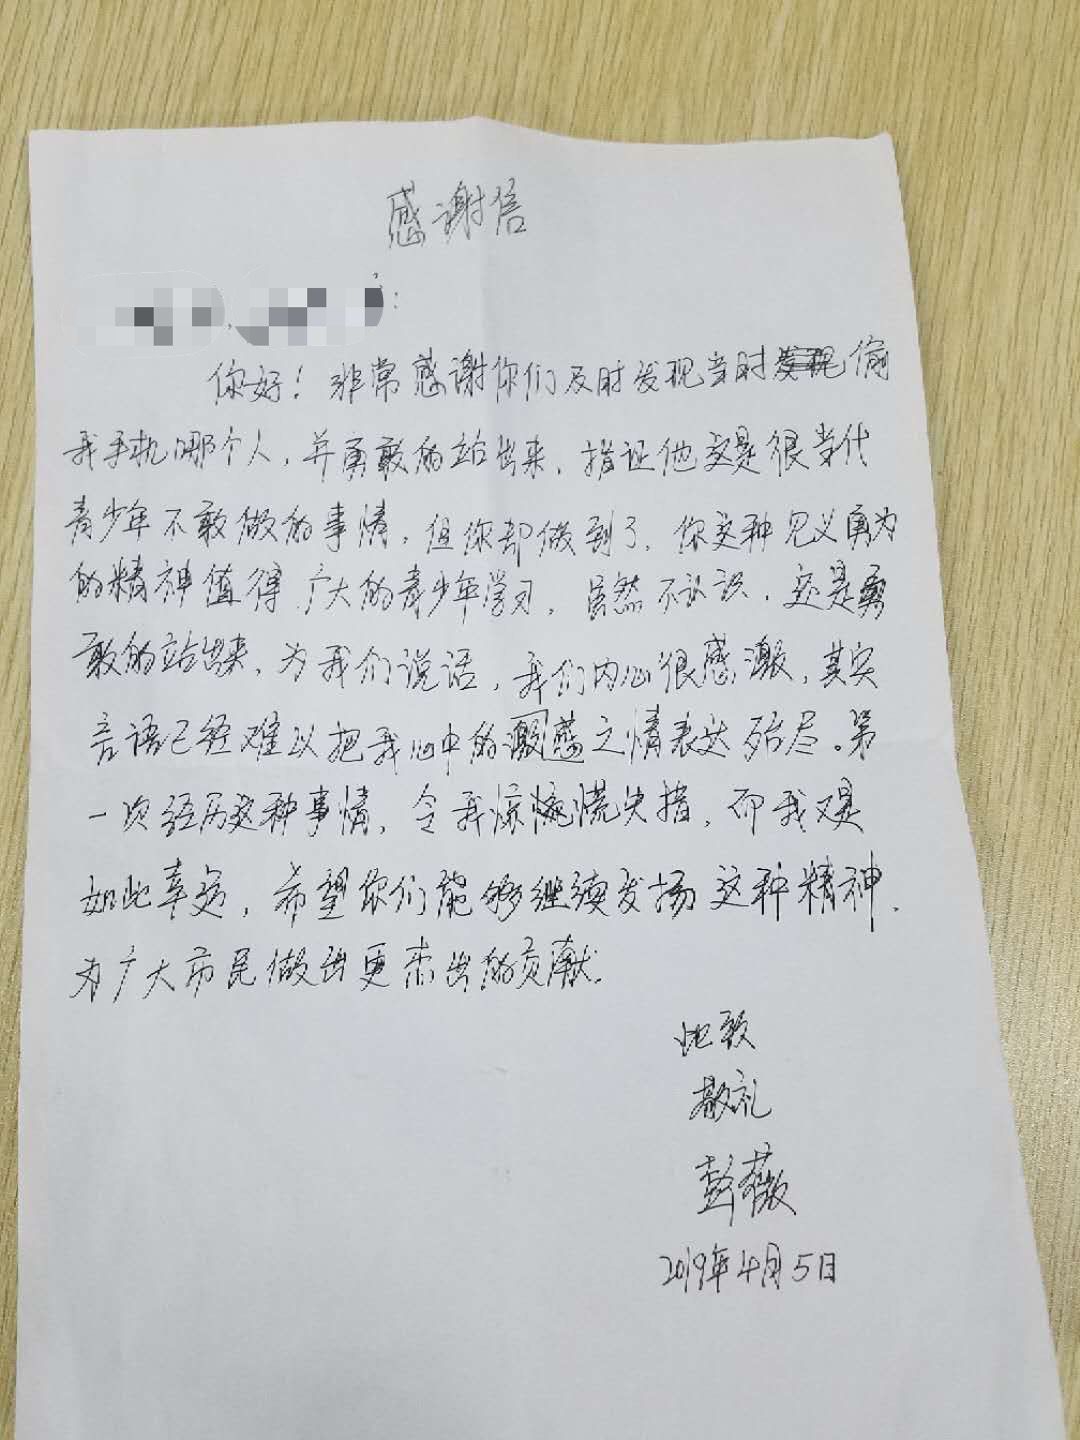 感谢信
,       :
你好！非常感谢你们及时发现当时偷
我手机哪个人，并勇敢的站出来，指证他这是很当代
青少年不敢做的事情，但你却做到了，你这种见义勇为
的精神值得广大的青少年学习，虽然不认识，还是勇
敢的站出来，为我们说话，我们内心很感激，其实
言语已经难以把我心中的激感之情表达殆尽。第
一次经历这种事情，令我惊慌失措，而我又是
如此幸运，希望你们能够继续发扬这种精神，
为广大市民做出更杰出的贡献.
此致
敬礼
彭薇
2019年4月5日